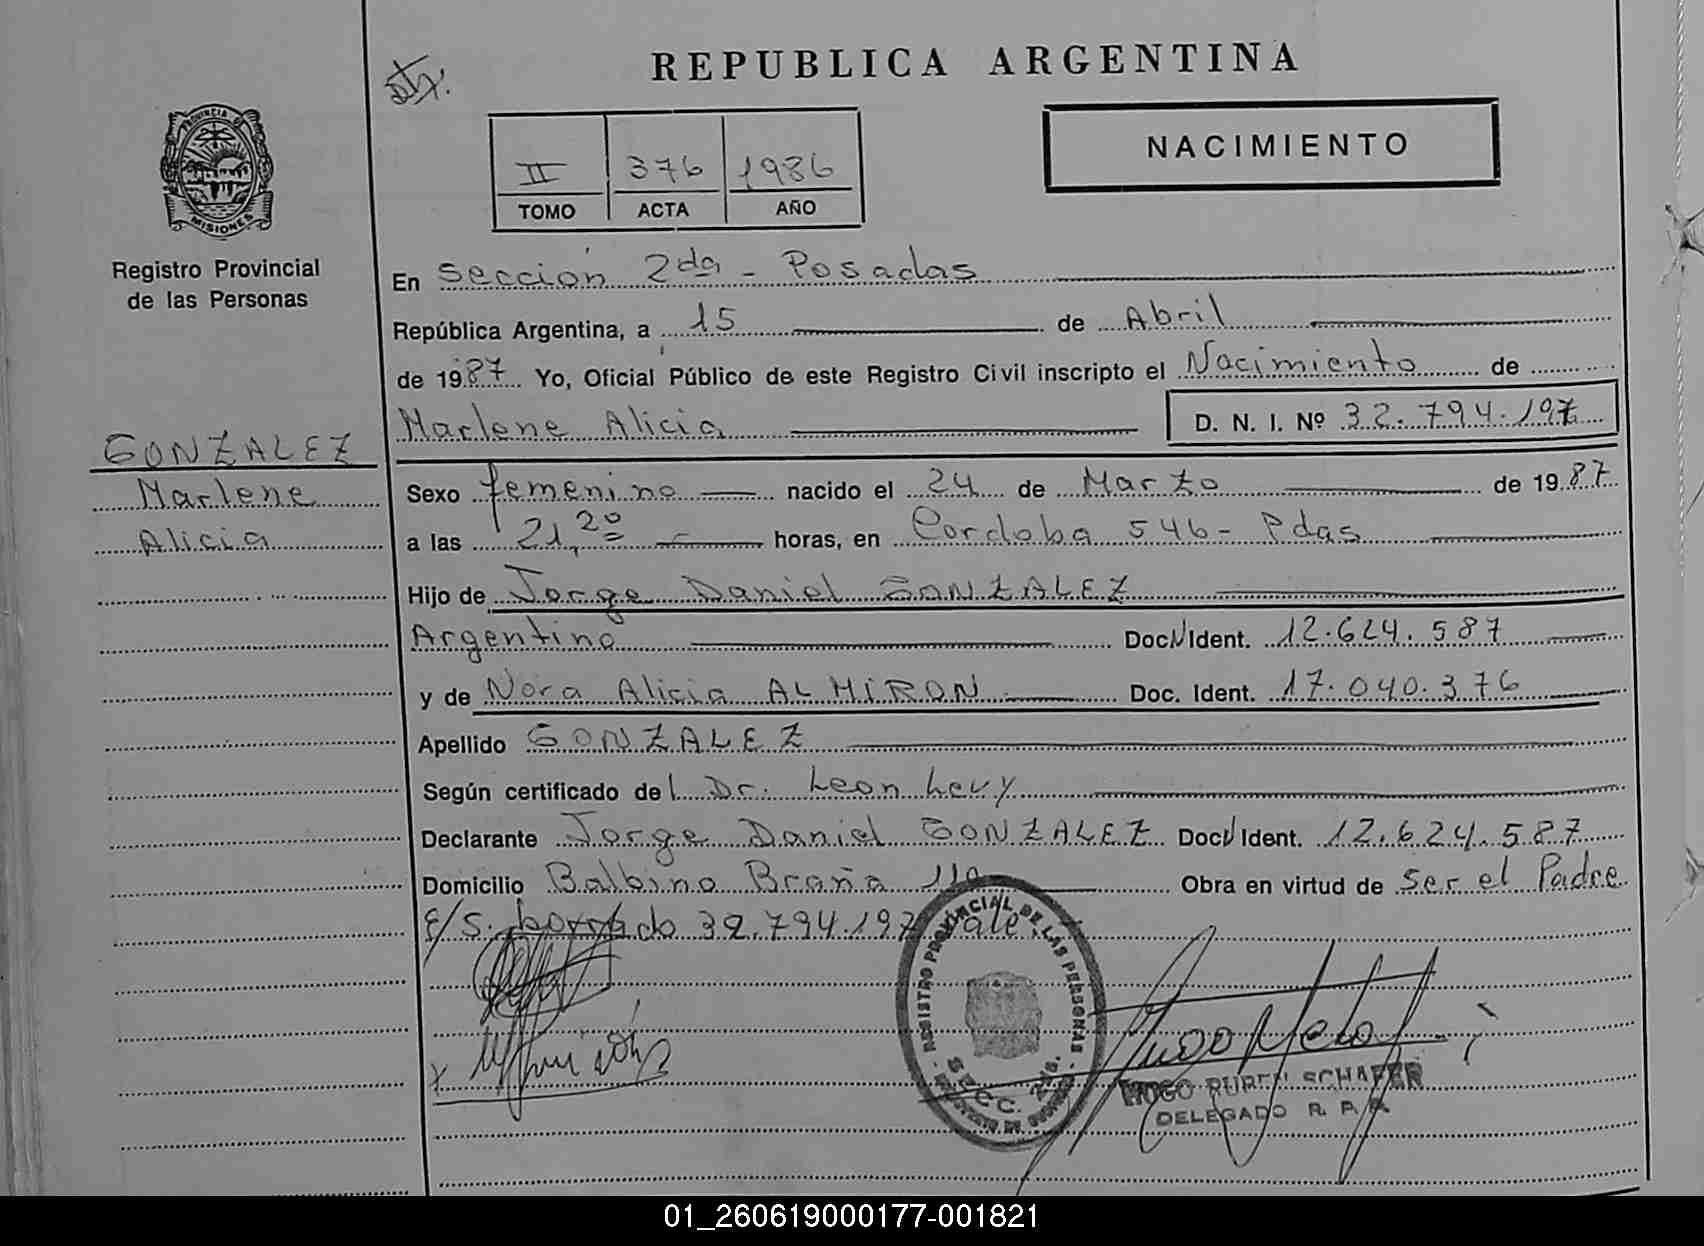 REPUBLICA ARGENTINA
PROVINCIA DE
MISIONES
Registro Provincial
de las Personas
II 376 1986
TOMO ACTA AÑO
NACIMIENTO
En Sección 2da - Posadas
República Argentina, a 15 de Abril
de 1987 Yo, Oficial Público de este Registro Civil inscripto el Nacimiento de
Marlene Alicia D. N. I. Nº 32.794.197
GONZALEZ
Marlene
Alicia
Sexo femenino nacido el 24 de Marzo de 1987
a las 21,20 horas, en Cordoba 546 - Pdas
Hijo de Jorge Daniel GONZALEZ
Argentino Doc. Ident. 12.624.587
y de Nora Alicia ALMIRON Doc. Ident. 17.040.376
Apellido GONZALEZ
Según certificado del Dr. Leon Levy
Declarante Jorge Daniel GONZALEZ Doc. Ident. 12.624.587
Domicilio Balbino Braña 110 Obra en virtud de Ser el Padre
E/S. borrado 32.794.197 Vale.
REGISTRO PROVINCIAL DE LAS PERSONAS
SECC. 2da.
HUGO RUBEN SCHAFER
DELEGADO R. P. P.
01_260619000177-001821